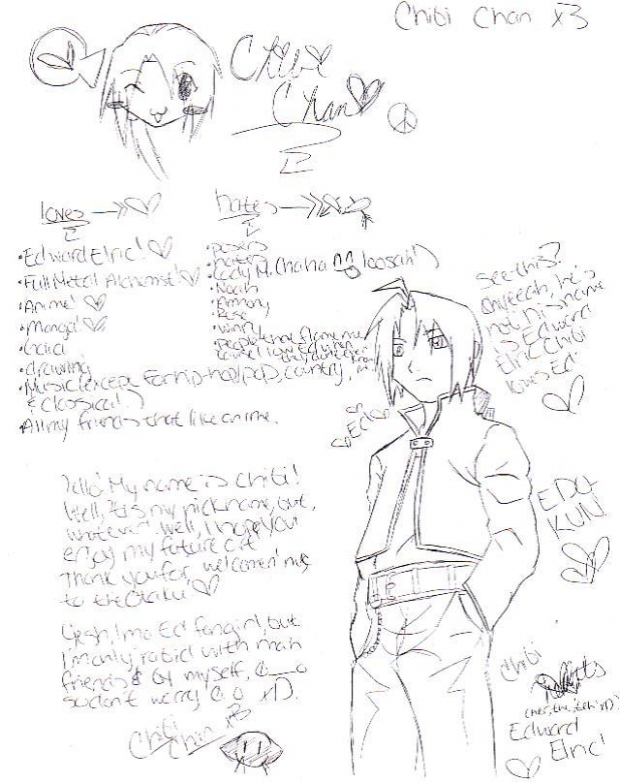 Chibi Chan x3
Chibi
Chan
loves
hates
•Edward Elric!
•Full Metal Alchemist!
•Anime!
•Manga!
•drawing
•Music (except for hip-hop, pop, country,
& classical!)
•All my friends that like anime.
•posers
•haters
•Noah
•Armony
•Rose
•winry
•people that flame me
See this?
Ohh yeah, he's
hot. his name
is Edward
Elric. Chibi
loves Ed!
Ed
EDO
KUN!
Hello! My name is Chibi!
Well, 'tis my nickname, but,
whatever. Well, I hope you
enjoy my future art.
Thank you for welcomen' me,
to theOtaku
Yesh, Imo Ed fangirl, but
I'm only rabid with mah
friends & by myself,
so don't worry xD.
Chibi
Chan x3
Chibi
Edward
Elric!